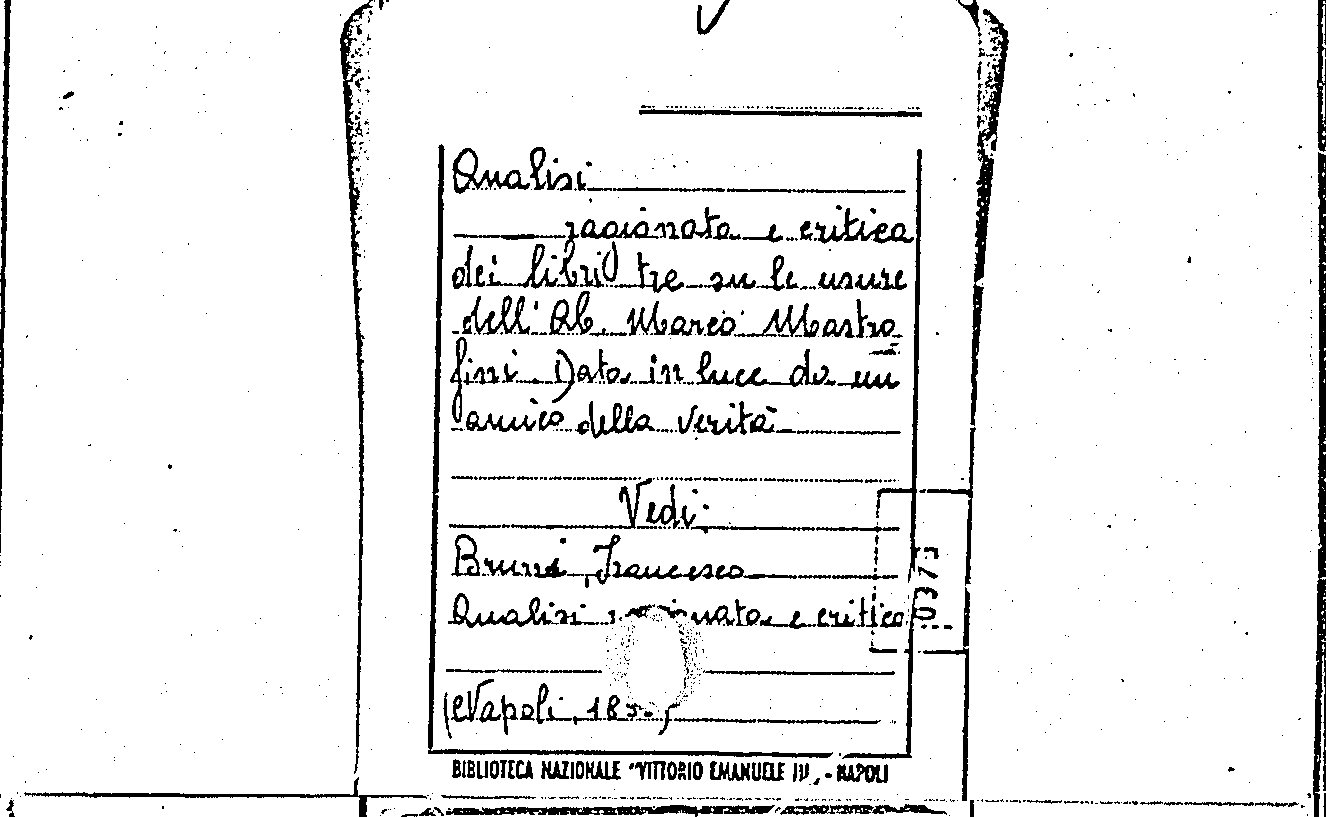 Analisi
ragionata e critica
dei libri tre su le usure
dell' Ab. Marco Mastro
fini. Data in luce da un
amico della verità
Vedi:
Bruni, Francesco
Analisi ragionata e critica
(Napoli, 18
BIBLIOTECA NAZIONALE "VITTORIO EMANUELE III" - NAPOLI